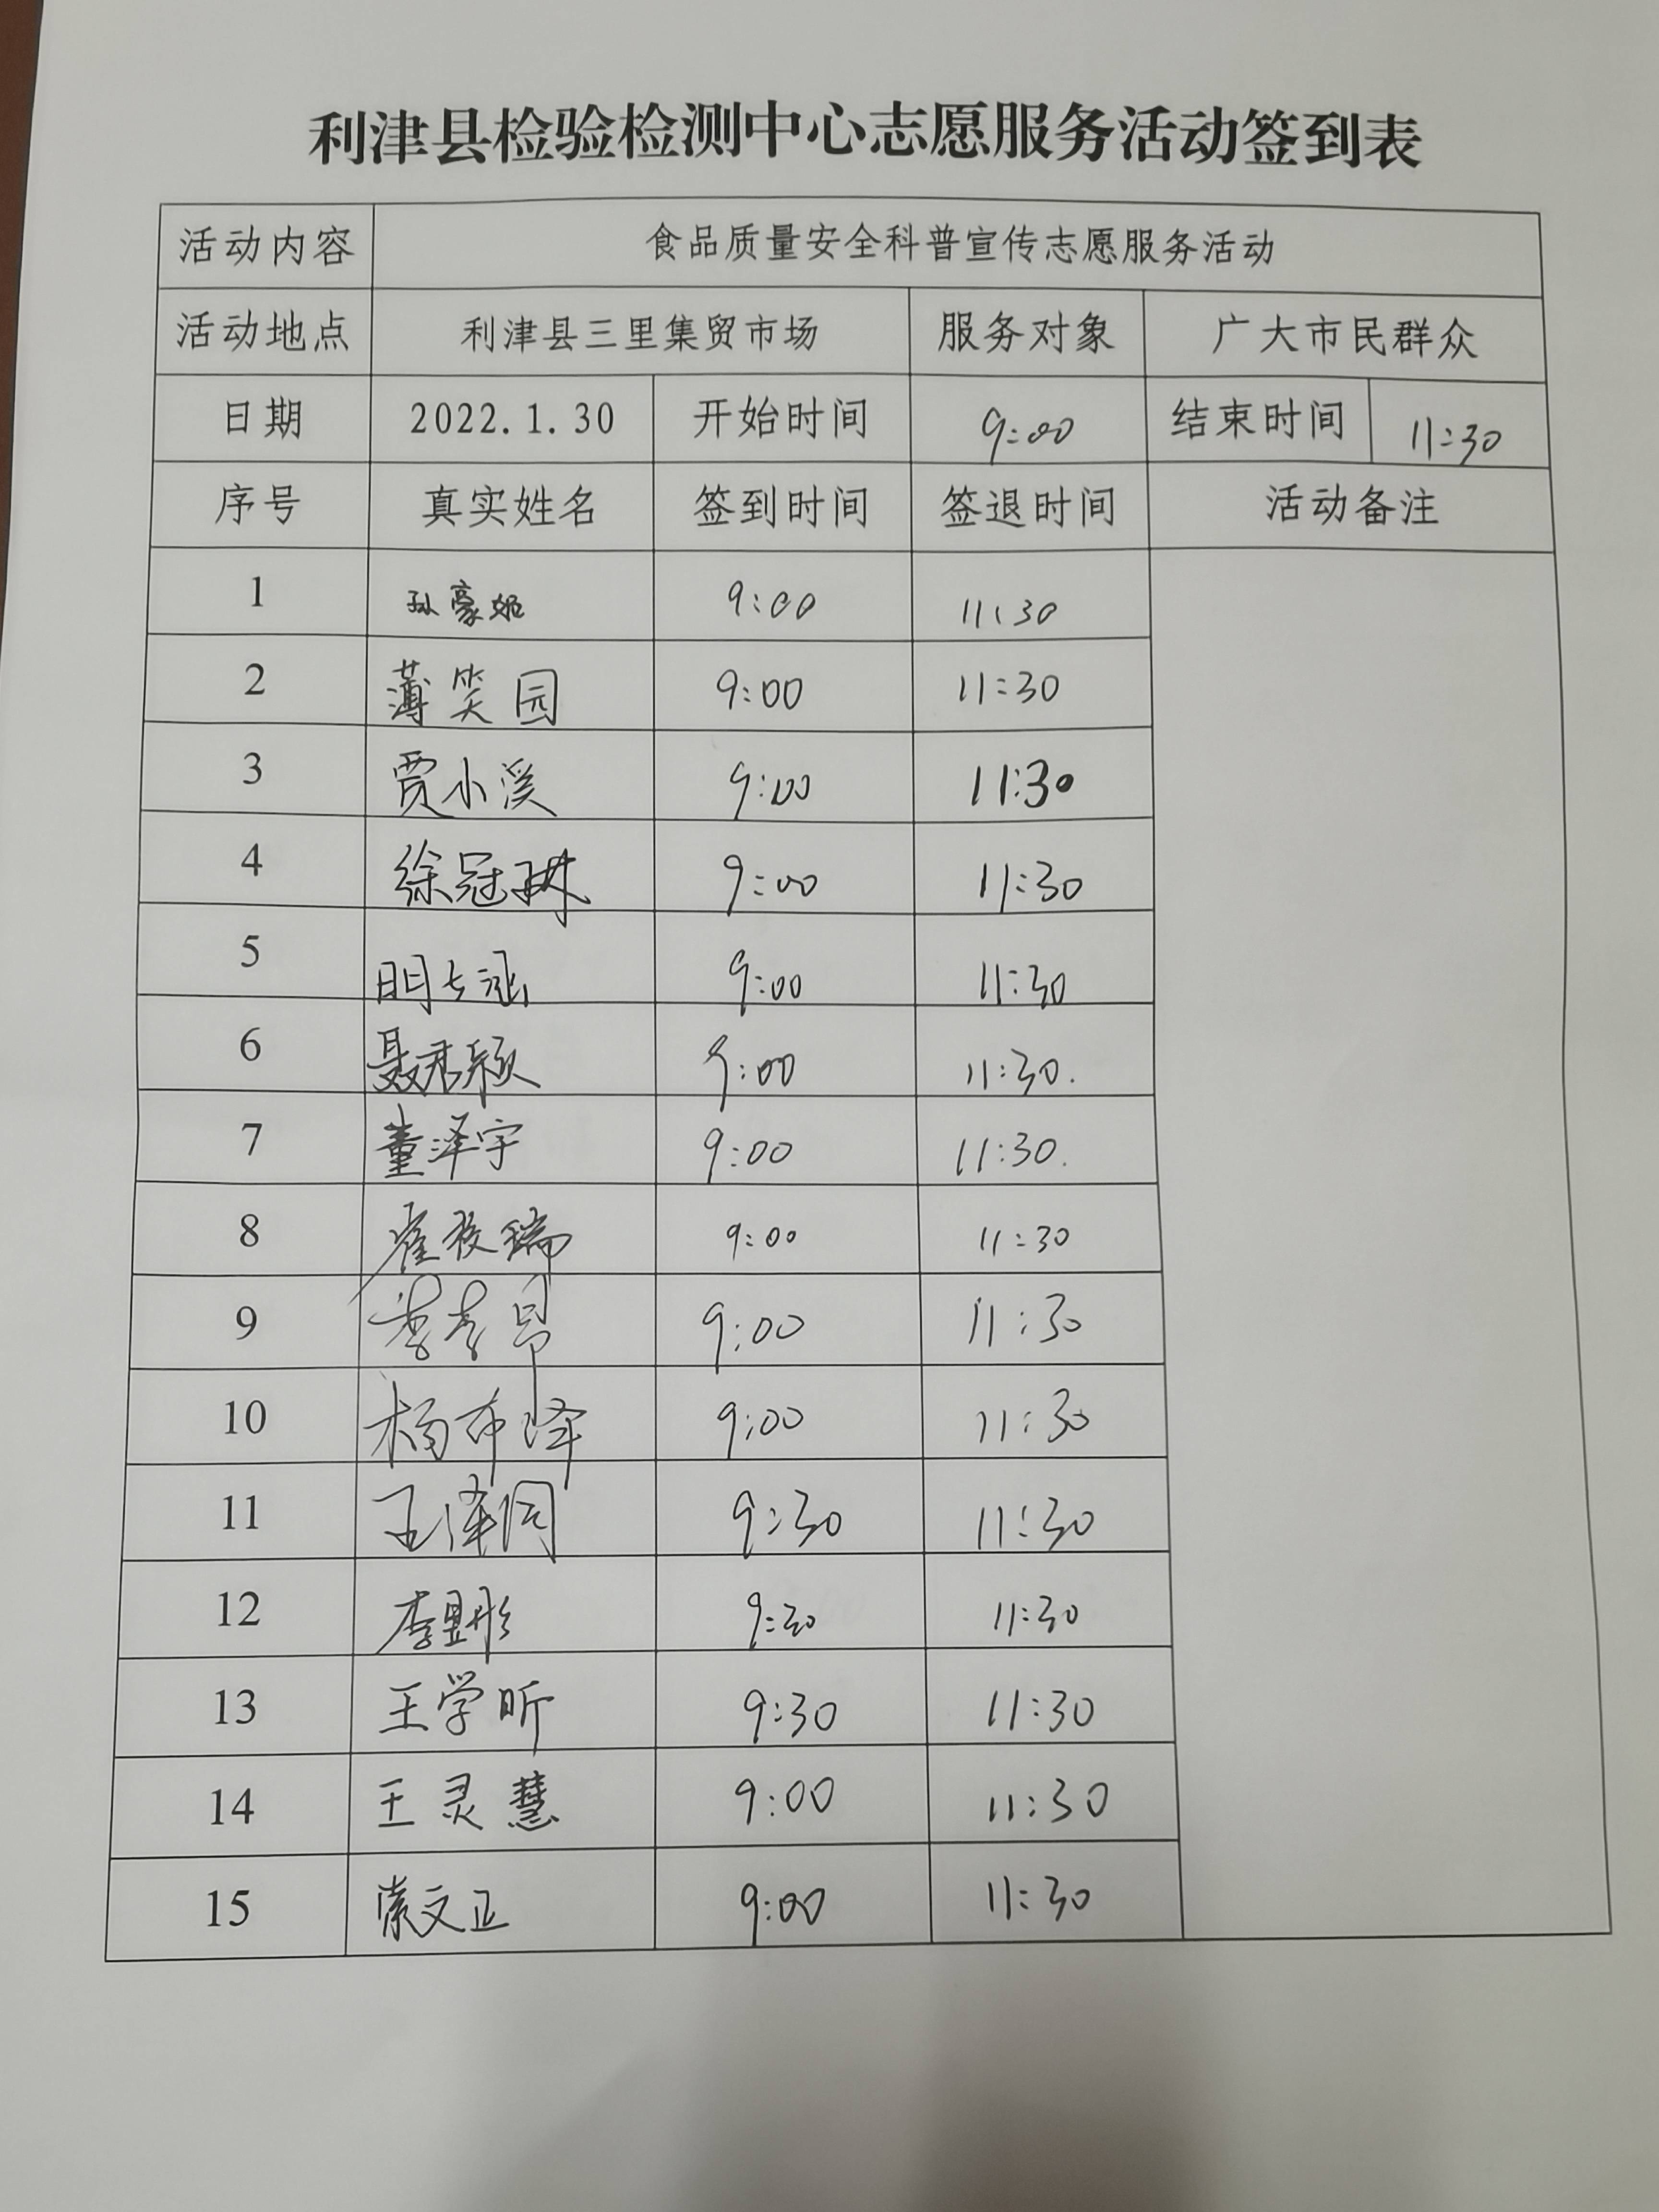 利津县检验检测中心志愿服务活动签到表
活动内容 食品质量安全科普宣传志愿服务活动
活动地点 利津县三里集贸市场 服务对象 广大市民群众
日期 2022.1.30 开始时间 9:00 结束时间 11:30
序号 真实姓名 签到时间 签退时间 活动备注
1 孙豪 9:00 11:30
2 薄笑园 9:00 11:30
3 贾小溪 9:00 11:30
4 徐冠琳 9:00 11:30
5 明 涵 9:00 11:30
6 聂君颖 9:00 11:30.
7 董泽宇 9:00 11:30.
8 瑞 9:00 11:30
9 李 昂 9:00 11:30
10 杨布泽 9:00 11:30
11 王泽同 9:30 11:30
12 李昱彤 9:30 11:30
13 王学昕 9:30 11:30
14 王灵慧 9:00 11:30
15 文正 9:00 11:30